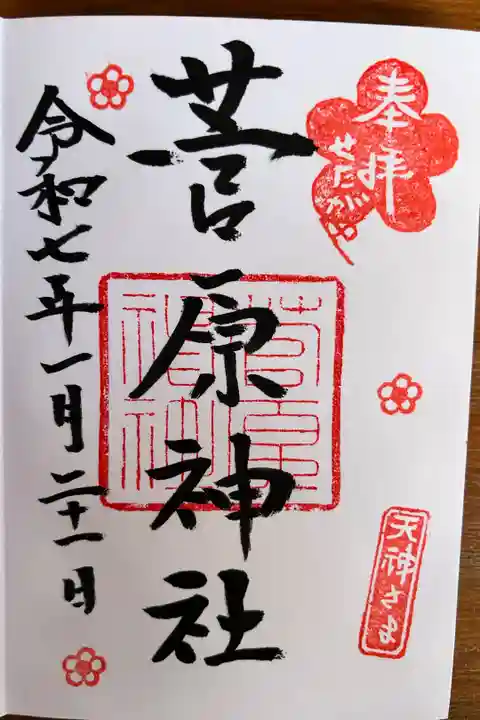 奉拝
菅原神社
令和七年一月二十一日
天神さま